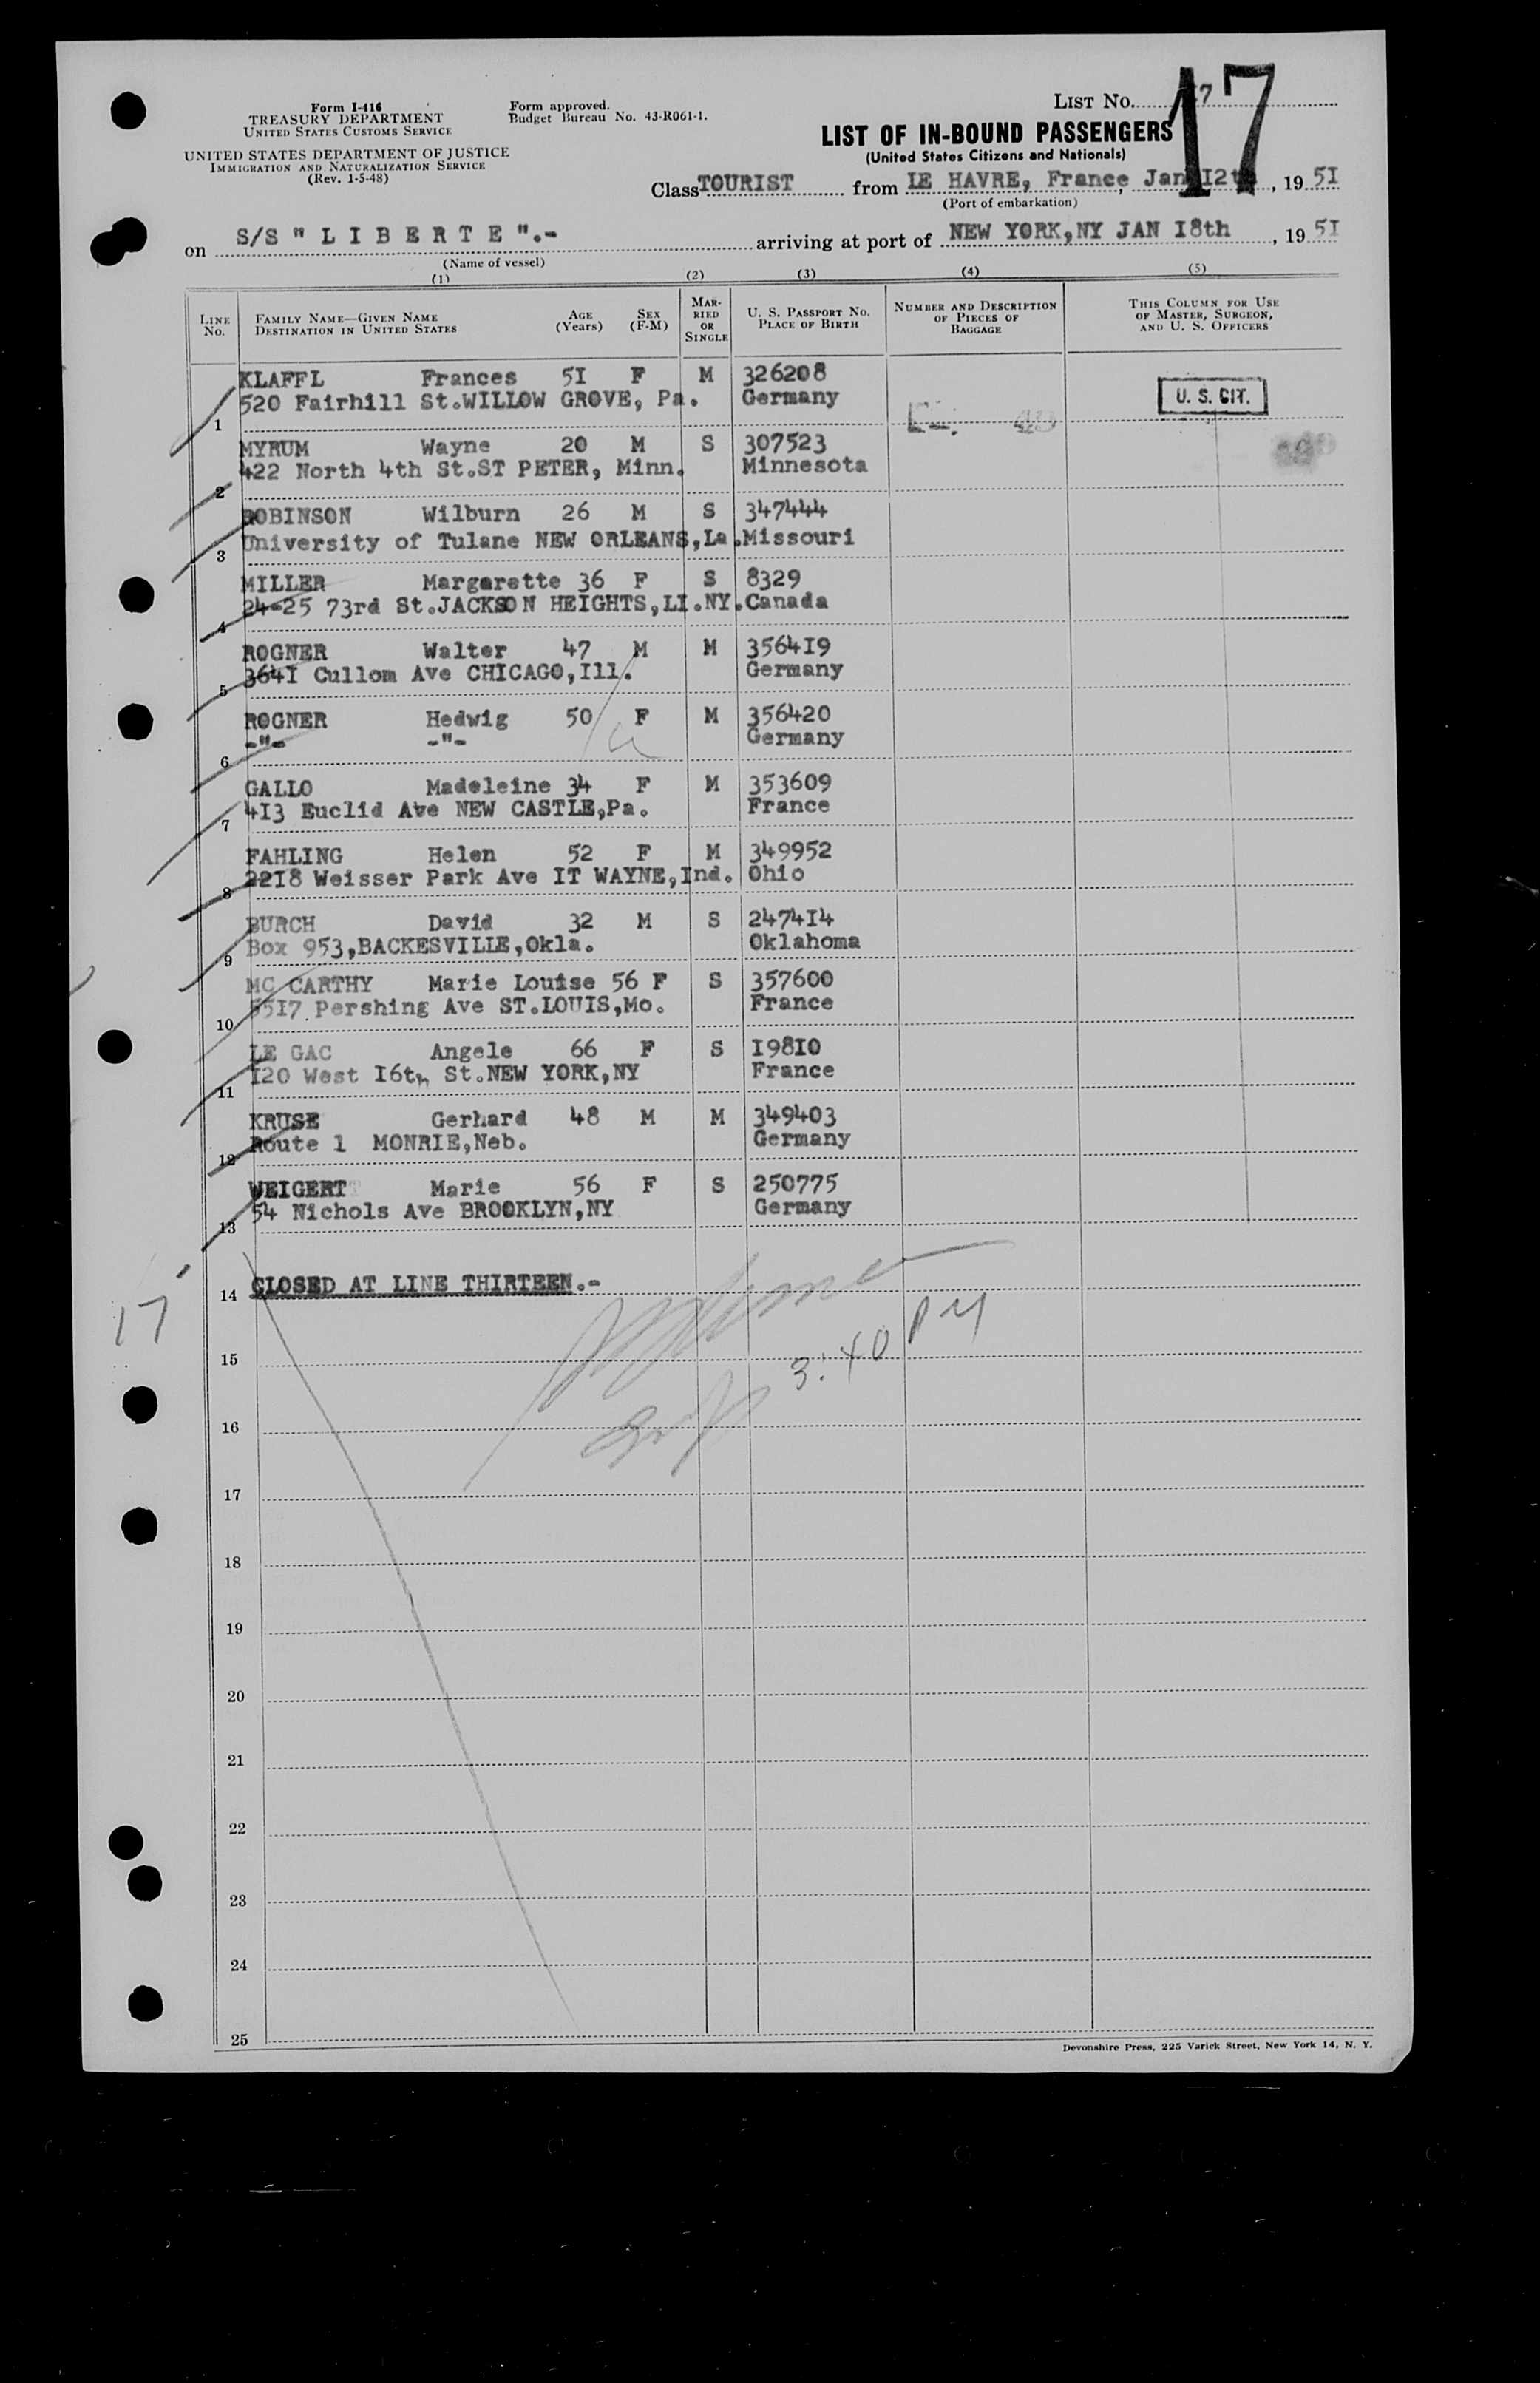 Form I-416
TREASURY DEPARTMENT
UNITED STATES CUSTOMS SERVICE
UNITED STATES DEPARTMENT OF JUSTICE
IMMIGRATION AND NATURALIZATION SERVICE
(Rev. 1-5-48)
Form approved.
Budget Bureau No. 43-R061-1.
LIST NO. 17
LIST OF IN-BOUND PASSENGERS
(United States Citizens and Nationals)
Class TOURIST from LE HAVRE, France, Jan 12th, 1951
(Port of embarkation)
on S/S " L I B E R T E ".- arriving at port of NEW YORK,NY JAN 18th, 1951
(Name of vessel)
(1) (2) (3) (4) (5)
LINE No. FAMILY NAME—GIVEN NAME DESTINATION IN UNITED STATES AGE (Years) SEX (F-M) MARRIED OR SINGLE U. S. PASSPORT NO. PLACE OF BIRTH NUMBER AND DESCRIPTION OF PIECES OF BAGGAGE THIS COLUMN FOR USE OF MASTER, SURGEON, AND U. S. OFFICERS
KLAFFL Frances 5I F M 326208
1 520 Fairhill St.WILLOW GROVE, Pa. Germany U. S. CIT.
MYRUM Wayne 20 M S 307523
2 422 North 4th St.ST PETER, Minn. Minnesota
ROBINSON Wilburn 26 M S 347444
3 University of Tulane NEW ORLEANS,La. Missouri
MILLER Margarette 36 F S 8329
4 24-25 73rd St.JACKSON HEIGHTS,LI.NY. Canada
ROGNER Walter 47 M M 3564I9
5 364I Cullom Ave CHICAGO,Ill. Germany
ROGNER Hedwig 50 F M 356420
6 -"- -"- Germany
GALLO Madeleine 34 F M 353609
7 4I3 Euclid Ave NEW CASTLE,Pa. France
FAHLING Helen 52 F M 349952
8 22I8 Weisser Park Ave IT WAYNE,Ind. Ohio
BURCH David 32 M S 2474I4
9 Box 953,BACKESVILLE,Okla. Oklahoma
MC CARTHY Marie Louise 56 F S 357600
10 55I7 Pershing Ave ST.LOUIS,Mo. France
LE GAC Angele 66 F S I98I0
11 I20 West I6th St.NEW YORK,NY France
KRUSE Gerhard 48 M M 349403
12 Route 1 MONRIE,Neb. Germany
WEIGERT Marie 56 F S 250775
13 54 Nichols Ave BROOKLYN,NY Germany
14 CLOSED AT LINE THIRTEEN.-
17
3:40 PM
15
16
17
18
19
20
21
22
23
24
25
Devonshire Press, 225 Varick Street, New York 14, N. Y.